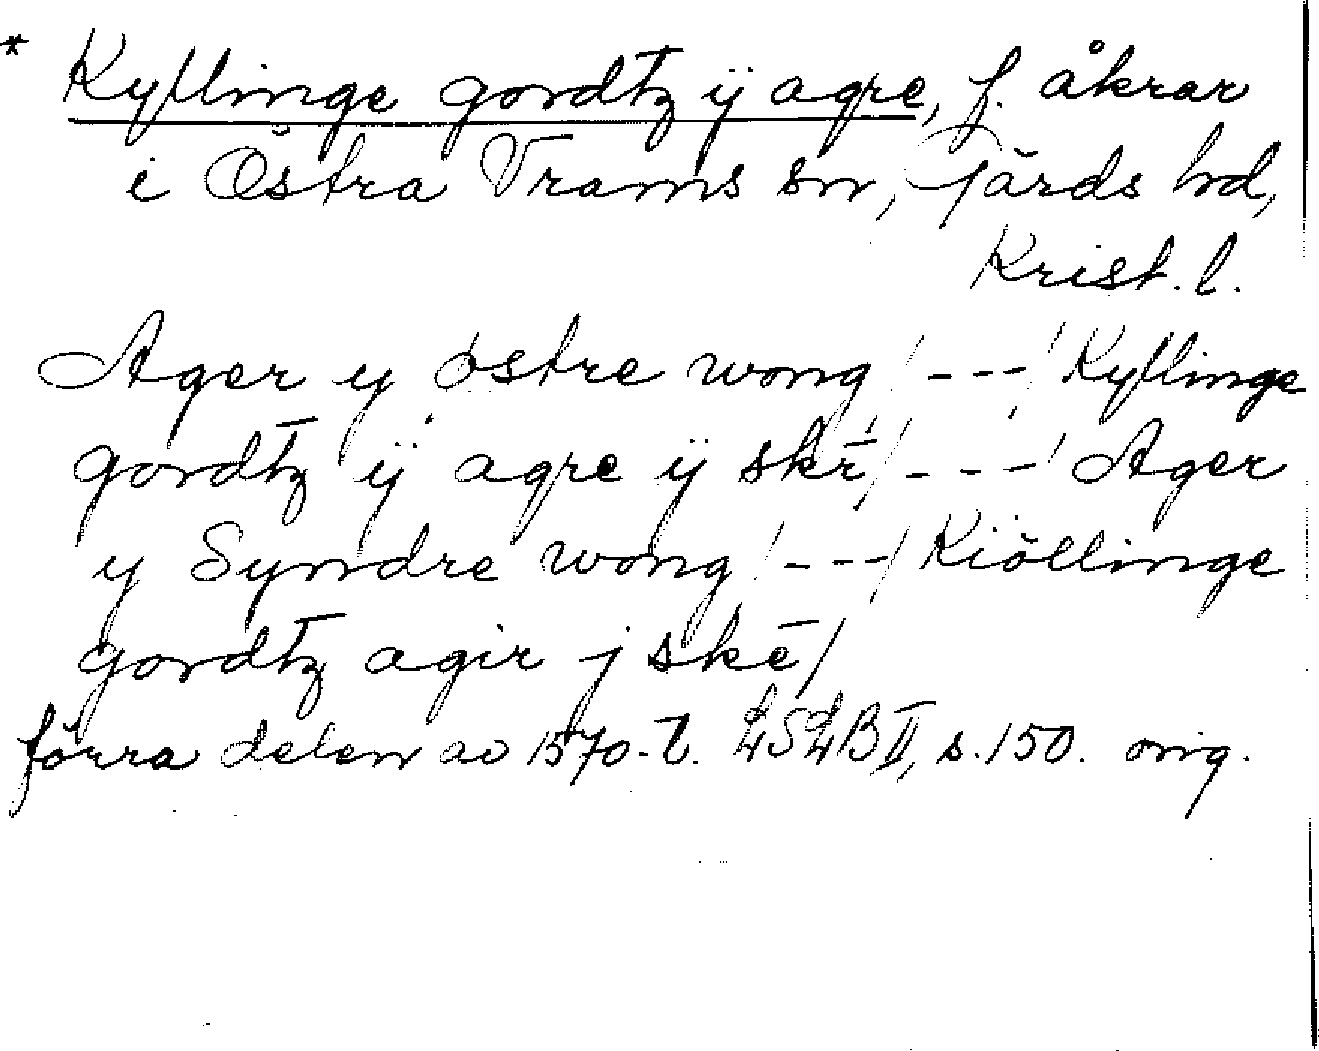 * Kyflinge gordtz ÿ agre, f. åkrar
i Östra Vrams sn, Gärds hd,
Krist. l.
Ager y østre wong /---/ Kyflinge
gordtz ÿ agre ÿ skr̄ /---/ Ager
y Syndre wong /---/ Kiöllinge
gordtz agir j skē/
förra delen av 1570-t. LSLB II, s. 150. orig.